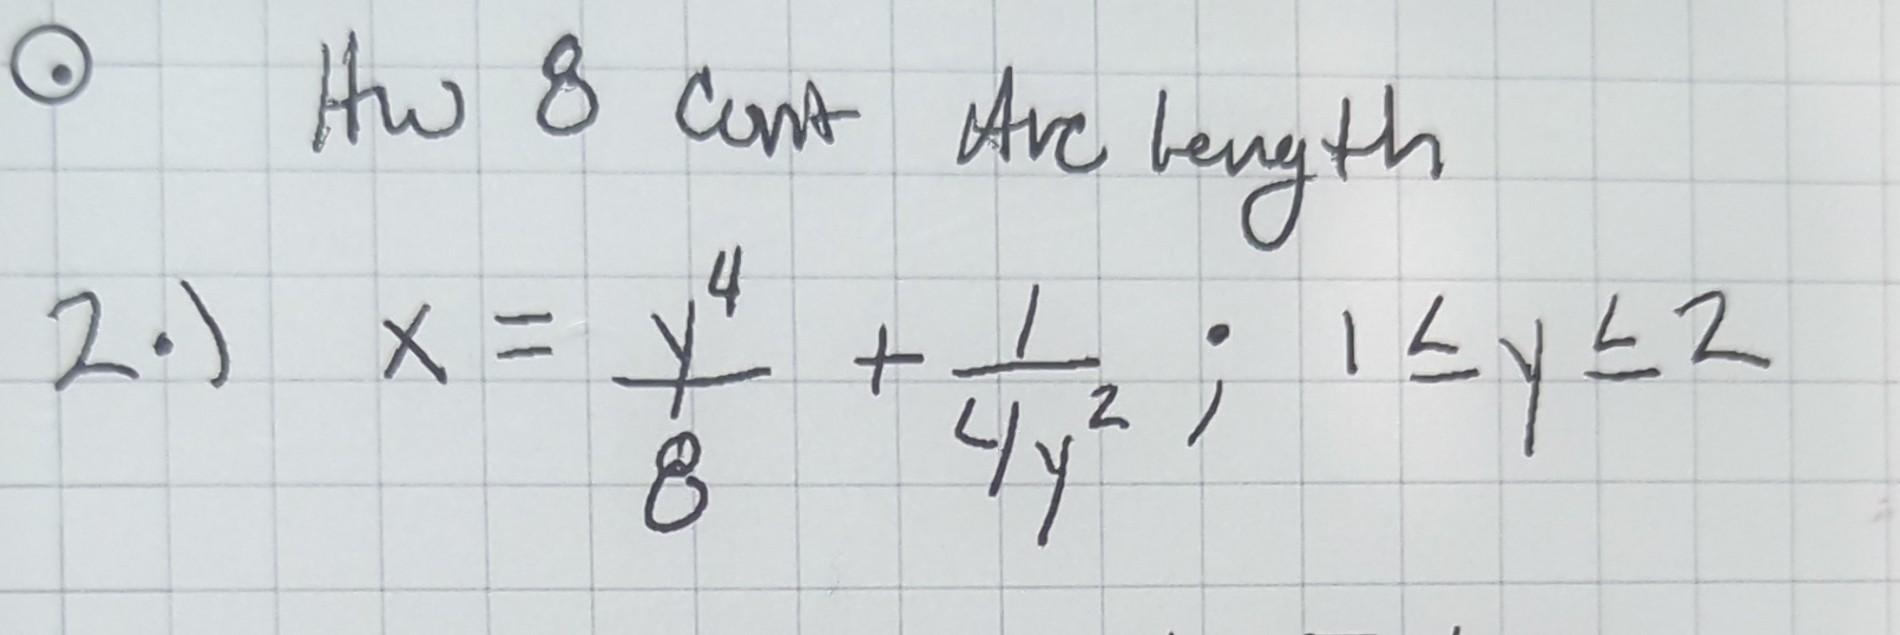 Hw 8 Cont Arc Length
2.) x = y^4/8 + 1/4y^2 ; 1 ≤ y ≤ 2